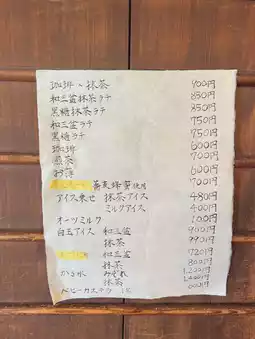 珈琲、抹茶 900円
和三盆抹茶ラテ 850円
黒糖抹茶ラテ 850円
和三盆ラテ 750円
黒糖ラテ 750円
珈琲 600円
煎茶 700円
600円
蕎麦蜂蜜使用 700円
アイス乗せ 抹茶アイス 480円
ミルクアイス 400円
オーツミルク 100円
白玉アイス 和三盆 900円
抹茶 990円
和三盆 720円
抹茶 800円
かき氷 みぞれ 1,230円
抹茶